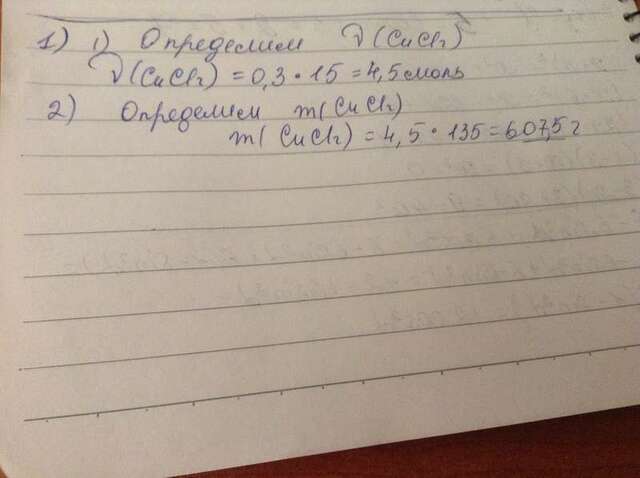 1) 1) Определим ν(CuCl₂)
ν(CuCl₂) = 0,3 · 15 = 4,5 моль
2) Определим m(CuCl₂)
m(CuCl₂) = 4,5 · 135 = 607,5 г